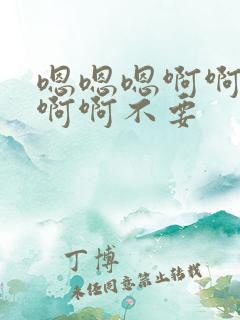 嗯嗯嗯啊啊
啊啊不要
丁博
未经同意禁止转载